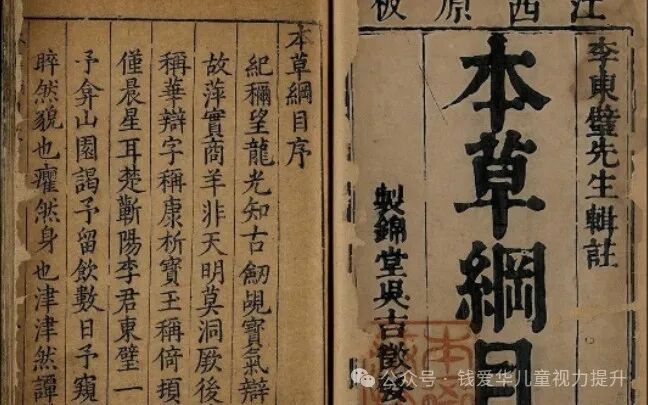 江西原板
李東璧先生輯註
本草綱目
製錦堂吳古徵
本草綱目序
紀稱望龍光知古劒覘寶氣辯
故萍實商羊非天明莫洞厥後
稱華辯字稱康析寶王稱倚頓
僅晨星耳楚蘄陽李君東璧一
予弇山園謁予留飲數日予窺
睟然貌也癯然身也津津然譚
公众号 · 钱爱华儿童视力提升